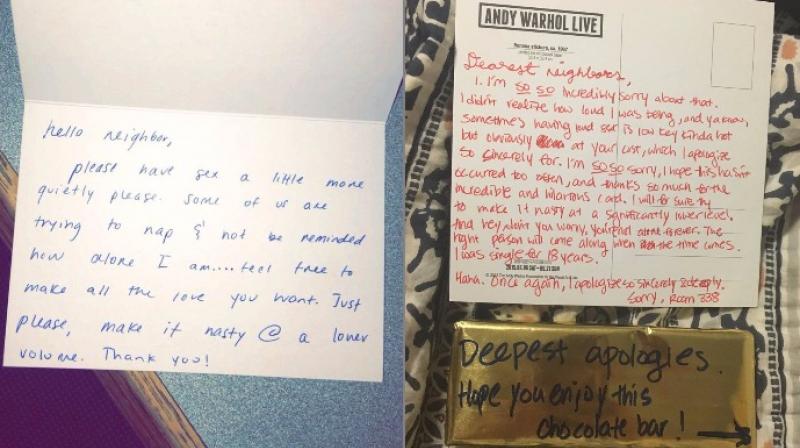 hello neighbor,
please have sex a little more
quietly please. Some of us are
trying to nap & not be reminded
how alone I am....feel free to
make all the love you want. Just
please, make it nasty @ a lower
volume. Thank you!
ANDY WARHOL LIVE
Dearest neighbors,
1. I'm so so incredibly sorry about that.
I didn't realize how loud I was being, and ya know,
sometimes having loud sex is low key kinda hot
but obviously at your cost, which I apologize
so sincerely for. I'm so so sorry, I hope this hasn't
occurred too often, and thanks so much for the
incredible and hilarious card. I will for sure try
to make it nasty at a significantly lower level.
And hey, don't you worry, you're not alone forever. The
right person will come along when the time comes.
I was single for 18 years.
Haha. Once again, I apologize so sincerely & deeply.
Sorry, Room 338
Deepest apologies.
Hope you enjoy this
chocolate bar!